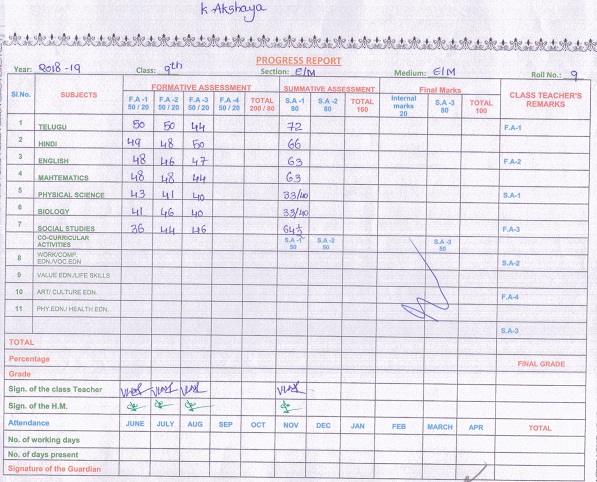 K Akshaya
PROGRESS REPORT
Year: 2018-19 Class: 9th Section: E/M Medium: E/M Roll No.: 9
Sl.No. SUBJECTS FORMATIVE ASSESSMENT SUMMATIVE ASSESSMENT Final Marks CLASS TEACHER'S REMARKS
F.A -1 50 / 20 F.A -2 50 / 20 F.A -3 50 / 20 F.A -4 50 / 20 TOTAL 200 / 80 S.A -1 80 S.A -2 80 TOTAL 160 Internal marks 20 S.A -3 80 TOTAL 100
1 TELUGU 50 50 44 72 F.A-1
2 HINDI 49 48 50 66
3 ENGLISH 48 46 47 63 F.A-2
4 MAHTEMATICS 48 48 44 63
5 PHYSICAL SCIENCE 43 41 40 33/40 S.A-1
6 BIOLOGY 41 46 40 33/40
7 SOCIAL STUDIES 36 44 46 64½ F.A-3
CO-CURRICULAR ACTIVITIES S.A -1 50 S.A -2 50 S.A -3 50
8 WORK/COMP. EDN./VOC.EDN S.A-2
9 VALUE EDN./LIFE SKILLS
10 ART/ CULTURE EDN. F.A-4
11 PHY.EDN./ HEALTH EDN.
S.A-3
TOTAL
Percentage FINAL GRADE
Grade
Sign. of the class Teacher
Sign. of the H.M.
Attendance JUNE JULY AUG SEP OCT NOV DEC JAN FEB MARCH APR TOTAL
No. of working days
No. of days present
Signature of the Guardian